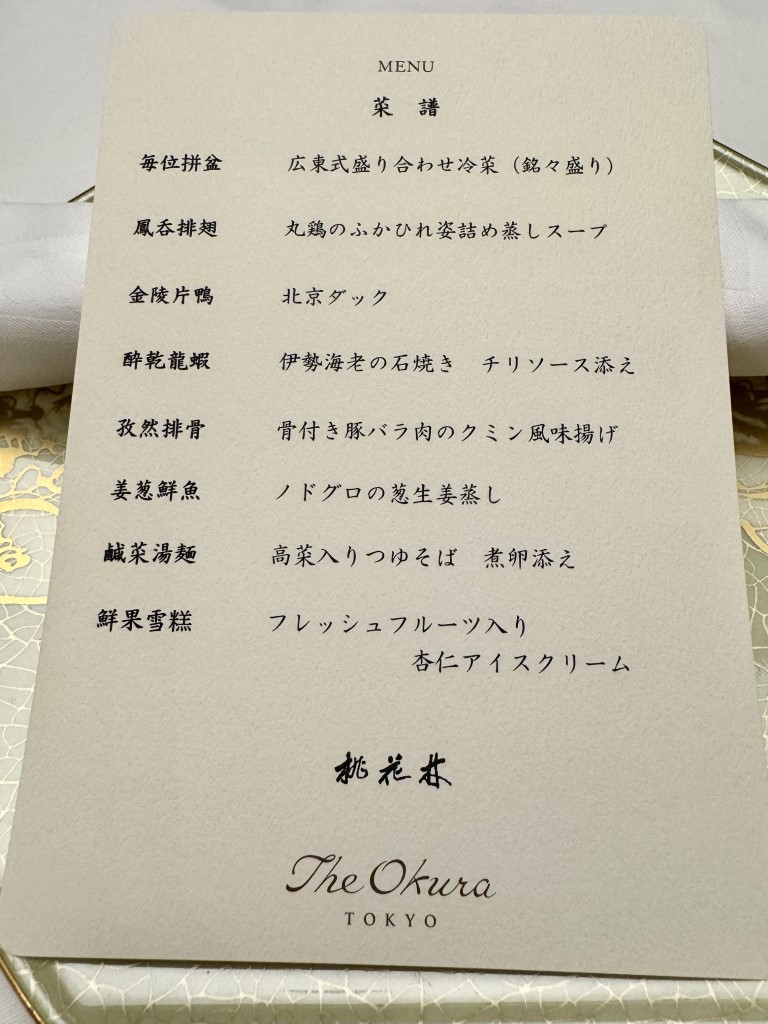 MENU
菜 譜
毎位拼盆 広東式盛り合わせ冷菜（銘々盛り）
鳳呑排翅 丸鶏のふかひれ姿詰め蒸しスープ
金陵片鴨 北京ダック
酔乾龍蝦 伊勢海老の石焼き チリソース添え
孜然排骨 骨付き豚バラ肉のクミン風味揚げ
姜葱鮮魚 ノドグロの葱生姜蒸し
鹹菜湯麺 高菜入りつゆそば 煮卵添え
鮮果雪糕 フレッシュフルーツ入り
杏仁アイスクリーム
桃花林
The Okura
TOKYO